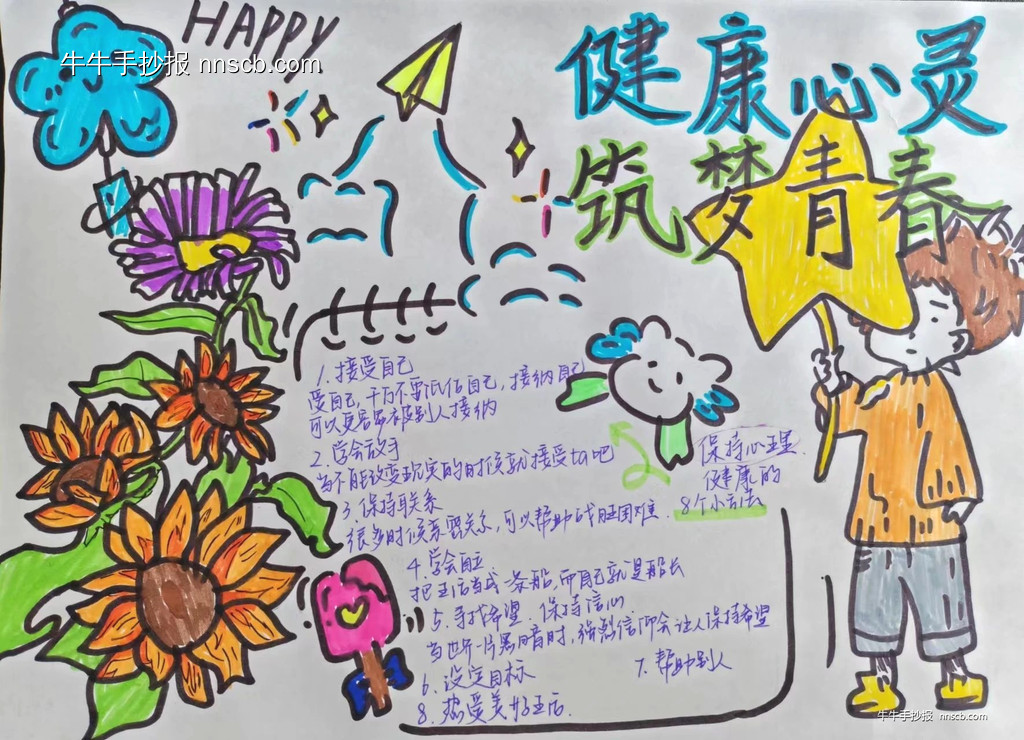 HAPPY
牛牛手抄报 nnscb.com
健康心灵
筑梦青春
1. 接受自己
爱自己,千万不要低估自己,接纳自己
可以更容易被别人接纳
2. 学会放手
当不能改变现实的时候就接受ta吧
3. 保持联系
很多时候亲密关系,可以帮助战胜困难.
4. 学会自立
把生活当成一条船,而自己就是船长
5. 寻找希望.保持信心
当世界一片黑暗时,强烈信仰会让人保持希望
6. 设定目标
7. 帮助别人
8. 热爱美好生活.
保持心理
健康的
8个小方法
牛牛手抄报 nnscb.com